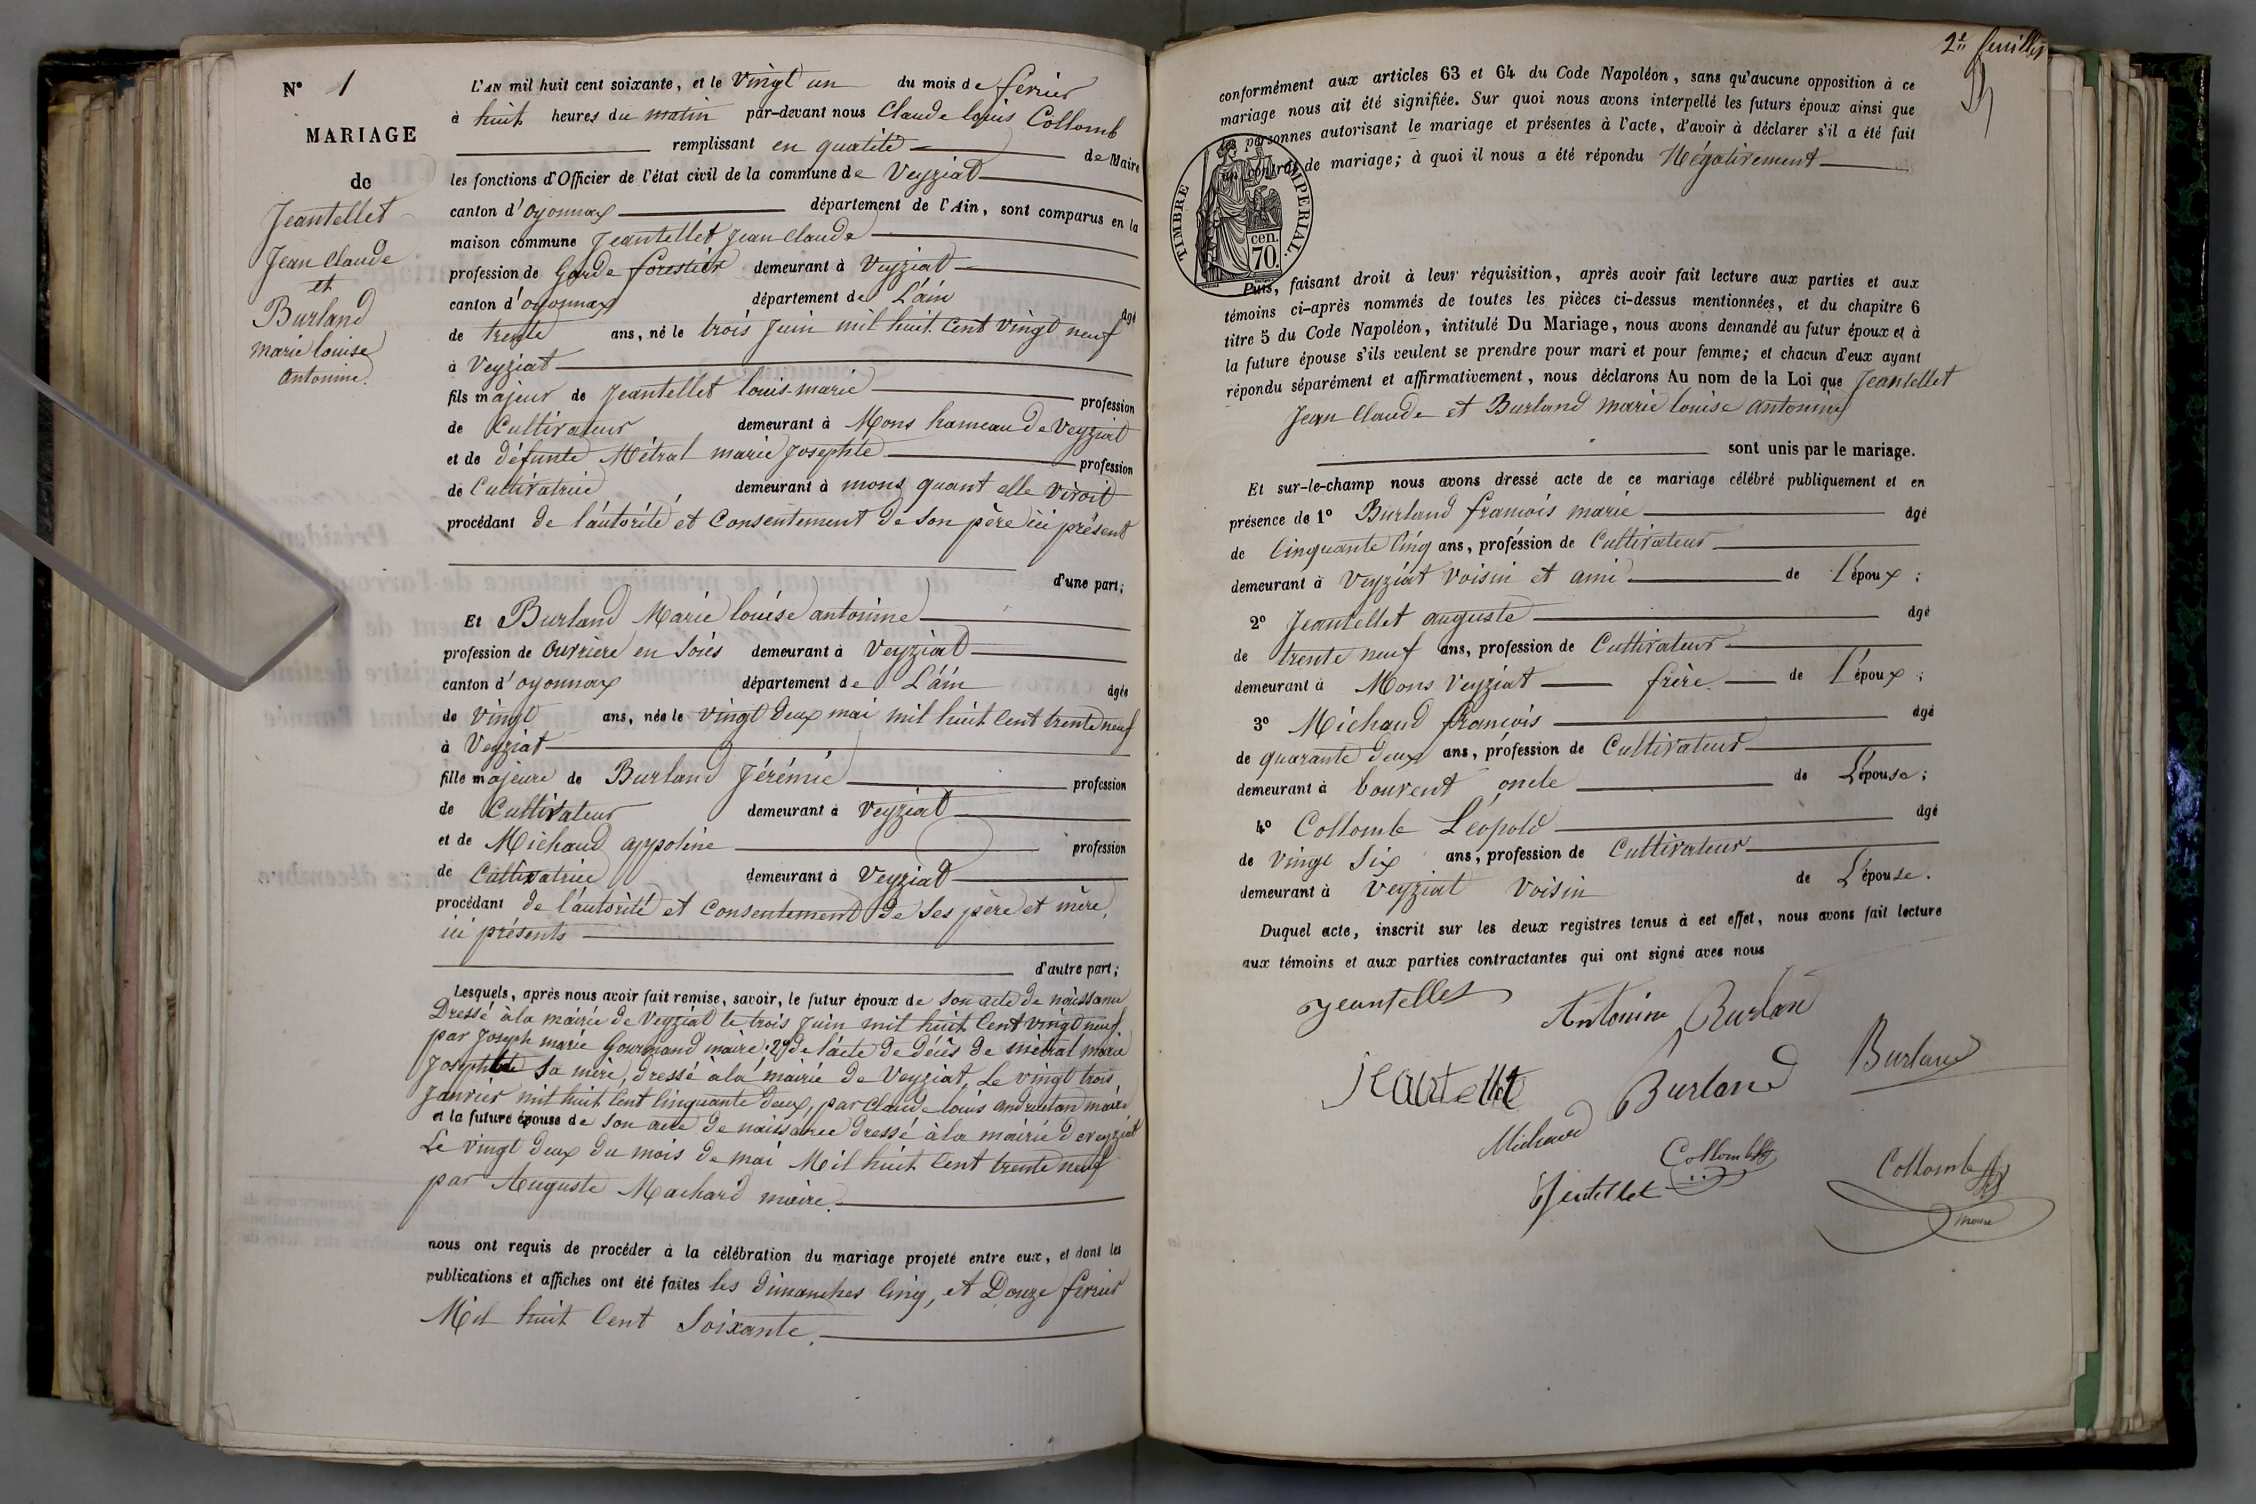 N° 1
MARIAGE
de
Jeantellet
Jean Claude
et
Burland
marie louise
antonine.
L'AN mil huit cent soixante, et le vingt un du mois de fevrier
à huit heures du matin par-devant nous Claude louis Collomb
remplissant en qualité de Maire
les fonctions d'Officier de l'état civil de la commune de Veyziat
canton d'oyonnax département de l'Ain, sont comparus en la
maison commune Jeantellet Jean Claude
profession de Garde forestier demeurant à Veyziat
canton d'oyonnax département de L'ain âgé
de trente ans, né le trois Juin mil huit Cent vingt neuf
à Veyziat
fils majeur de Jeantellet louis-marie profession
de Cultivateur demeurant à Mons hameau de Veyziat
et de défunte Métral marie Josephte profession
de Cultivatrice demeurant à mons quant elle vivoit
procédant de l'autorité et Consentement de son père ici présent
d'une part;
Et Burland Marie louise antonine
profession de ouvrière en soies demeurant à Veyziat
canton d'oyonnax département de L'ain âgée
de vingt ans, née le vingt deux mai mil huit Cent trente neuf
à Veyziat
fille majeure de Burland Jérémie profession
de Cultivateur demeurant à Veyziat
et de Michaud appoline profession
de Cultivatrice demeurant à Veyziat
procédant de l'autorité et Consentement de ses père et mère,
ici présents
d'autre part;
Lesquels, après nous avoir fait remise, savoir, le futur époux de son acte de naissance
Dressé à la mairie de Veyziat le trois Juin mil huit Cent vingt neuf
par Joseph marie Gourmand maire. 2° de l'acte de décès de métral marie
Josephte sa mère, dressé à la mairie de Veyziat, Le vingt trois
Janvier mil huit Cent Cinquante deux, par Claude louis maire
et la future épouse de son acte de naissance dressé à la mairie de veyziat
Le vingt deux du mois de mai Mil huit Cent trente neuf
par Auguste Machard maire.
nous ont requis de procéder à la célébration du mariage projeté entre eux, et dont les
publications et affiches ont été faites les dimanches Cinq, et Douze fevrier
Mil huit Cent Soixante.
2e feuillet
conformément aux articles 63 et 64 du Code Napoléon, sans qu'aucune opposition à ce
mariage nous ait été signifiée. Sur quoi nous avons interpellé les futurs époux ainsi que
personnes autorisant le mariage et présentes à l'acte, d'avoir à déclarer s'il a été fait
un contrat de mariage; à quoi il nous a été répondu Négativement
TIMBRE IMPERIAL.
70 cen.
Puis, faisant droit à leur réquisition, après avoir fait lecture aux parties et aux
témoins ci-après nommés de toutes les pièces ci-dessus mentionnées, et du chapitre 6
titre 5 du Code Napoléon, intitulé Du Mariage, nous avons demandé au futur époux et à
la future épouse s'ils veulent se prendre pour mari et pour femme; et chacun d'eux ayant
répondu séparément et affirmativement, nous déclarons Au nom de la Loi que Jeantellet
Jean Claude et Burland marie louise antonine
sont unis par le mariage.
Et sur-le-champ nous avons dressé acte de ce mariage célébré publiquement et en
présence de 1° Burland francois marie âgé
de Cinquante Cinq ans, profession de Cultivateur
demeurant à Veyziat voisin et ami de l'époux;
2° Jeantellet auguste âgé
de trente neuf ans, profession de Cultivateur
demeurant à Mons Veyziat frère de l'époux;
3° Michaud francois âgé
de quarante deux ans, profession de Cultivateur
demeurant à bouvent oncle de L'épouse;
4° Collomb Léopold âgé
de vingt six ans, profession de Cultivateur
demeurant à Veyziat voisin de L'épouse.
Duquel acte, inscrit sur les deux registres tenus à cet effet, nous avons fait lecture
aux témoins et aux parties contractantes qui ont signé avec nous
Jeantellet Antonine Burlan
Jeantellet Burland Burland
Michaud Collomb Collomb
Jentellet maire